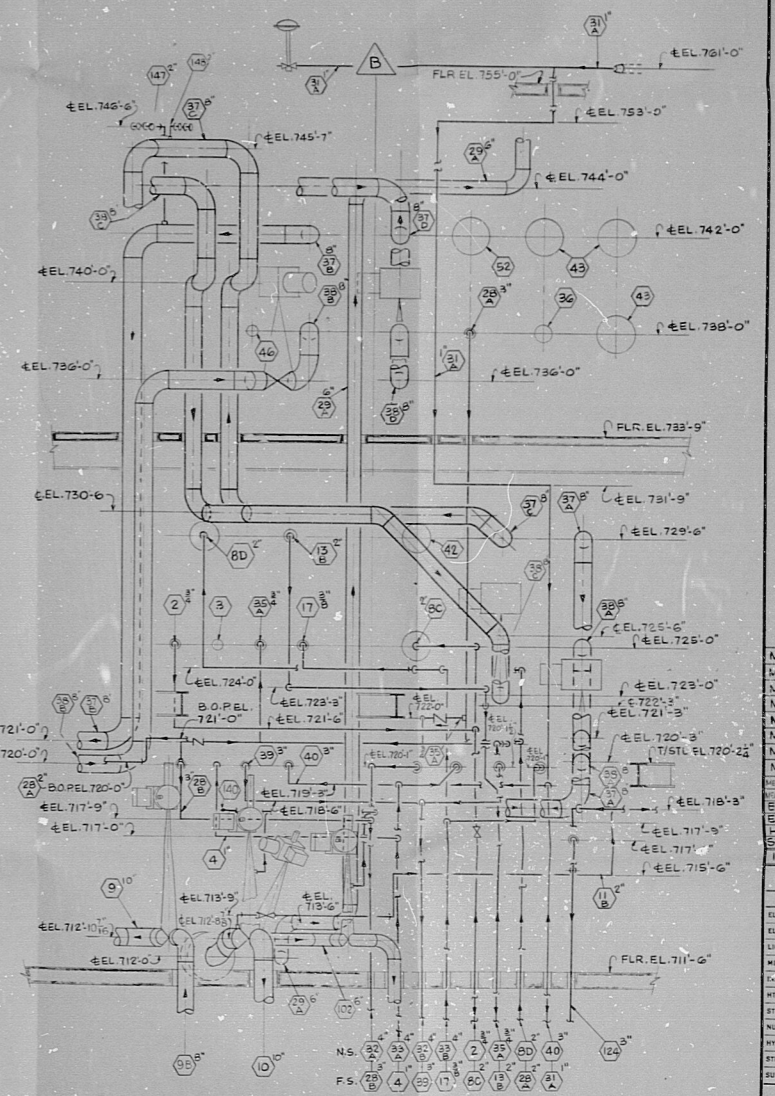 31 A 1"
B
31 A 1"
℄EL.761'-0"
FLR EL.755'-0"
℄EL.753'-0"
147 2"
148 2"
℄EL.746'-6"
37 C 8"
℄EL.745'-7"
29 A 6"
℄EL.744'-0"
38 C 8"
37 B 8"
37 D 8"
52
43
43
℄EL.742'-0"
℄EL.740'-0"
38 B 8"
28 A 3"
36
46
℄EL.738'-0"
℄EL.736'-0"
29 A 6"
38 D 8"
31 A 1"
℄EL.736'-0"
FLR.EL.733'-9"
℄EL.731'-9"
℄EL.730-6
37 C 8"
37 A 8"
℄EL.729'-6"
8D 2"
13 B 2"
42
38 C 8"
2 3/4"
3
35 A 3/4"
17 3/8"
8C 2"
38 A 8"
℄EL.725'-6"
℄EL.725'-0"
℄EL.724'-0"
℄EL.723'-3"
℄EL.723'-0"
℄EL.722'-3"
℄EL.721'-3"
B.O.P.EL. 721'-0"
℄EL.721'-6"
℄EL. 722'-0"
38 B 8"
37 B 8"
721'-0"
720'-0"
℄EL.720'-3"
T/STL.EL.720'-2¼"
28 A 2"
B.O.P.EL.720'-0"
28 B 3"
39 3"
40 3"
℄EL.720'-1"
35 A
38 A 8"
37 A 8"
℄EL.719'-3"
140
℄EL.718'-6"
℄EL.718'-3"
℄EL.717'-9"
℄EL.717'-0"
4 1"
℄EL.717'-9"
℄EL.715'-6"
11 B 2"
9 10"
℄EL.713'-9"
℄EL. 713'-6"
℄EL.712'-10 7/16"
℄EL.712-8½"
℄EL.712'-0"
FLR.EL.711'-6"
29 A 6"
102 6"
9B 8"
10 10"
124 3"
N.S. 32 A 4" 33 A 4" 32 B 4" 33 B 4" 2 3/4" 35 A 3/4" 8D 2" 40 3"
F.S. 28 B 3" 4 1" 39 3" 17 3/8" 8C 2" 13 B 2" 28 A 2" 31 A 1"